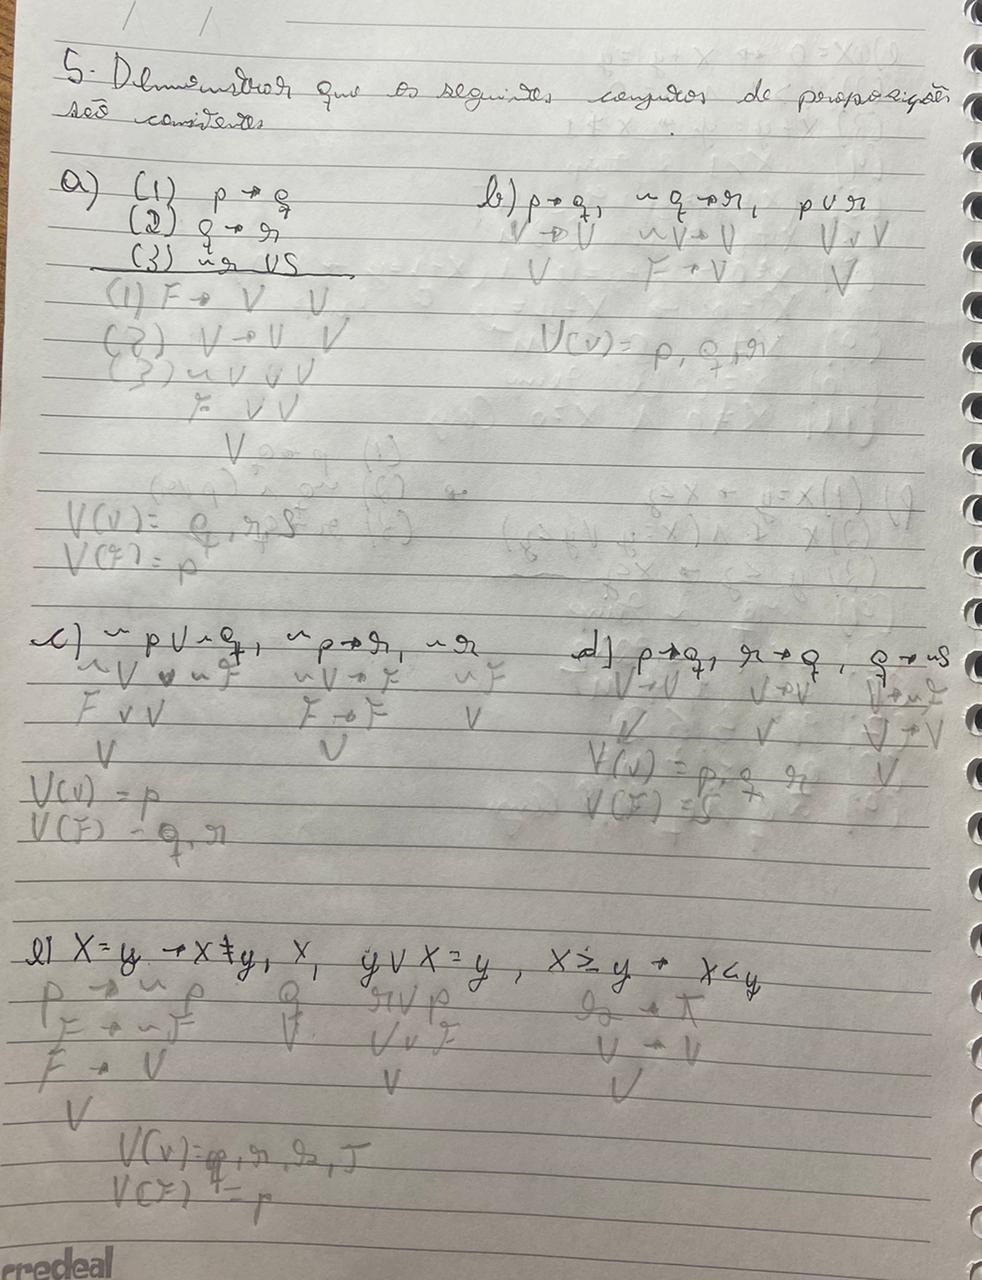 5- Demonstrar que os seguintes conjuntos de proposições
são consistentes
a) (1) p → q
(2) q → r
(3) ~r V S
(1) F → V V
(2) V → V V
(3) ~V v V
F v V
V
V(v) = q, r, S
V(F) = p
b) p → q, ~q → r, p v r
V → V ~V → V V v V
V F → V V
V(v) = p, q, r
c) ~p V ~q, ~p → r, ~r
~V v ~F ~V → F ~F
F v V F → F V
V V
V(v) = p
V(F) - q, r
d) p → q, r → q, q → ~S
V → V V → V V → ~F
V V V → V
V(v) = p, q r V
V(F) = S
e) X = y → X ≠ y, X, y V X = y, X ≥ y → X < y
p → ~p q r V p → T
F → ~F V V v F V → V
F → V V V
V
V(v) = q, r, T
V(F) = p
credeal